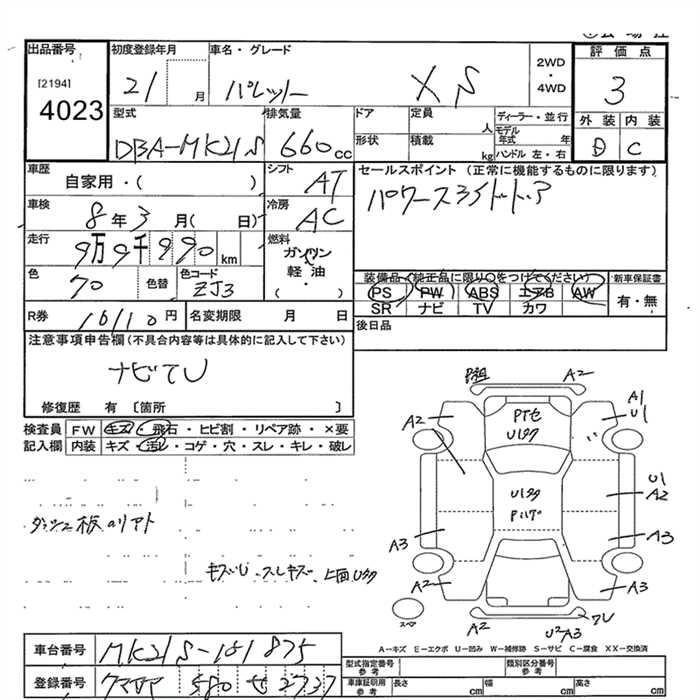 出品番号
[2194]
4023
初度登録年月
21 月
車名・グレード
パレット XS
2WD
・
4WD
評価点
3
外装 内装
D C
型式
DBA-MK21S
排気量
660cc
ドア
形状
定員
人
積載
kg
ディーラー・並行
モデル年式 年
ハンドル 左・右
車歴
自家用・( )
シフト
AT
セールスポイント (正常に機能するものに限ります)
パワースライドドア
車検
8年3月( 日)
冷房
AC
走行
9万9千990km
燃料
ガソリン
軽油
・( )
色
70
色替
色コード
ZJ3
装備品(純正品に限り○をつけてください)
PS PW ABS エアB AW
SR ナビ TV カワ
新車保証書
有・無
R券
10110円
名変期限 月 日
後日品
注意事項申告欄(不具合内容等は具体的に記入して下さい)
ナビTU
修復歴 有〔箇所 〕
検査員
記入欄
FW キズ・飛石・ヒビ割・リペア跡・×要
内装 キズ・汚レ・コゲ・穴・スレ・キレ・破レ
A2
A2
A1
U1
U1
A2
A3
A3
A2
A3
A2
U2A3
スペア
A-キズ E-エクボ U-凹み W-補修跡 S-サビ C-腐食 XX-交換済
車台番号
MK21S-151875
登録番号
580 せ 2737
型式指定番号
参考
類別区分番号
参考
車庫証明用
参考
長さ cm
幅 cm
高さ cm